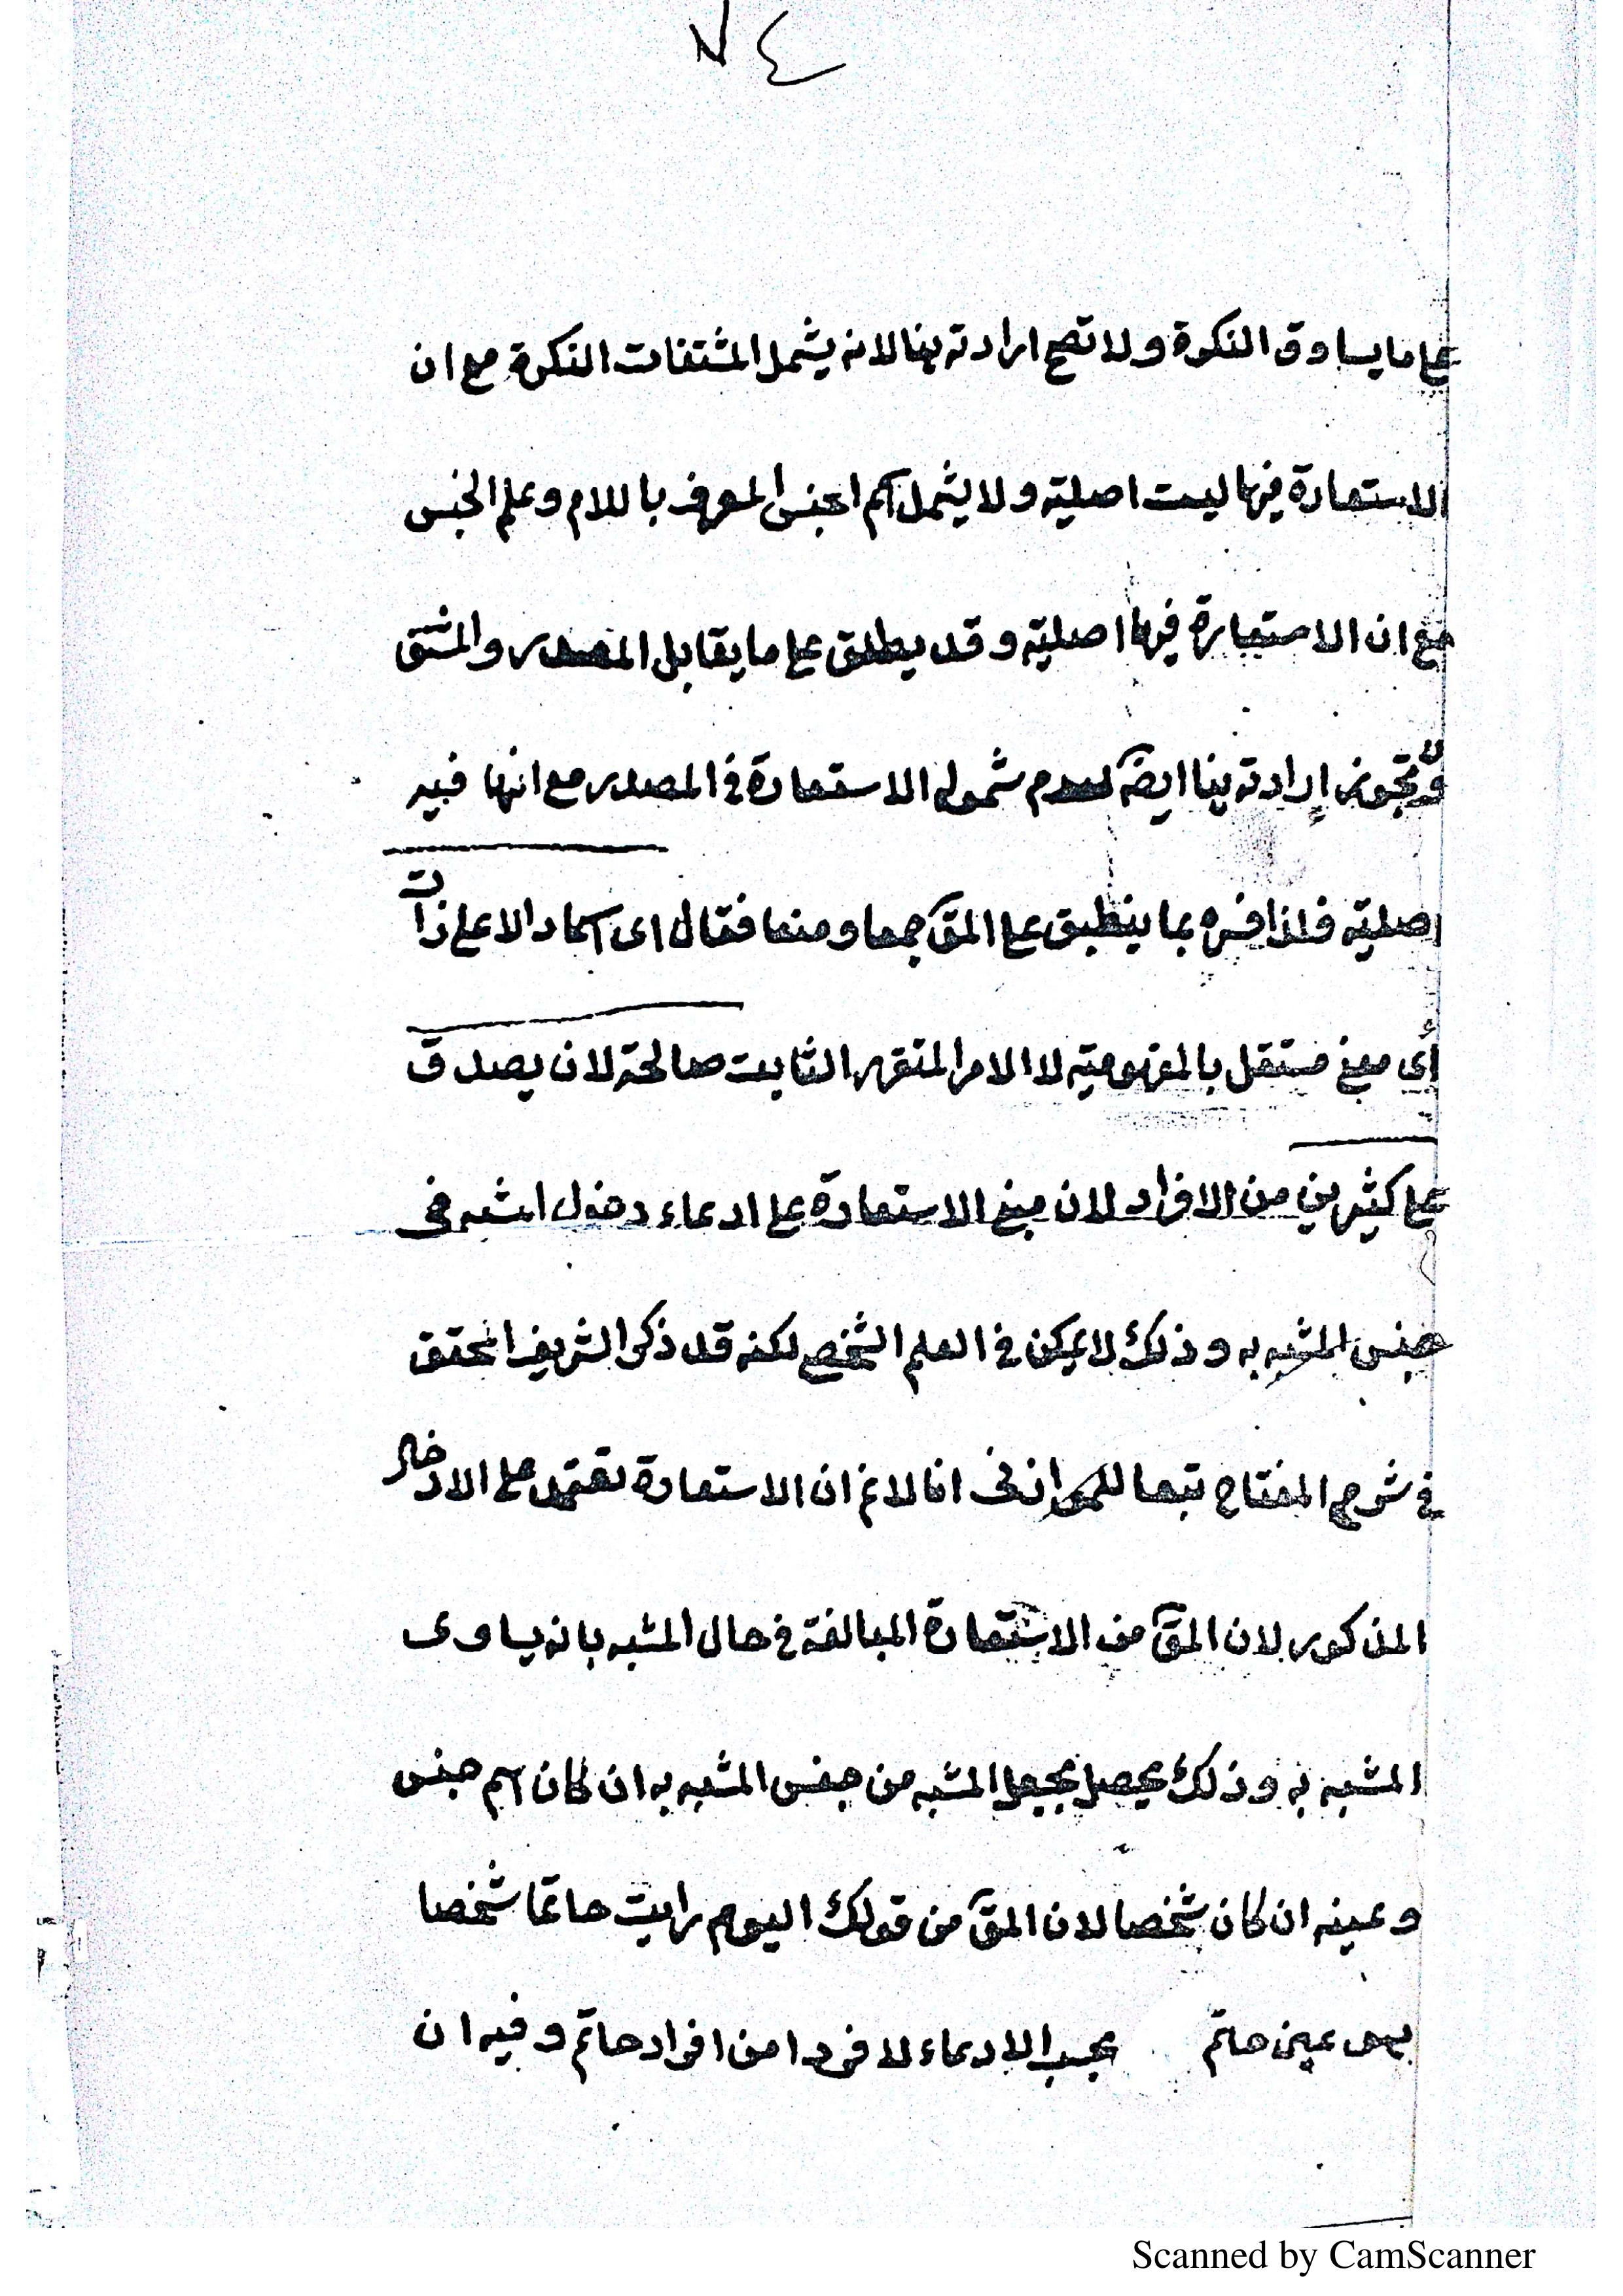 ٧٤
على ما يساوق النكرة ولا تصح ارادته هنا لانه يشمل المشتقات النكرة مع ان
الاستعارة فيها ليست اصلية ولا يشمل اسم الجنس المعرف باللام وعلم الجنس
مع ان الاستعارة فيها اصلية وقد يطلق على ما يقابل المصدر والمشتق
ولا تجوز إرادته هنا ايضا لعدم شموله الاستعارة في المصدر مع انها فيه
اصلية فلذا فسره بما ينطبق على المق جمعا ومنعا فقال اى اسما دالا على ذات
أى معنى مستقل بالمفهومية لا الامر المتقرر الثابت صالحة لان يصدق
على كثيرين من الافراد لان مبنى الاستعارة على ادعاء دخول المشبه في
جنس المشبه به وذلك لا يمكن في العلم الشخصي لكنه قد ذكر الشريف المحقق
في شرح المفتاح تبعا انا لانم ان الاستعارة تعتمد على الادخال
المذكور لان المق من الاستعارة المبالغة في حال المشبه بانه يساوى
المشبه به وذلك يحصل بجعل المشبه من جنس المشبه به ان كان اسم جنس
وعينه ان كان شخصا لان المق من قولك اليوم رايت حاتما شخصا
هو عين حاتم بحسب الادعاء لا فردا من افراد حاتم وفيه ان
Scanned by CamScanner